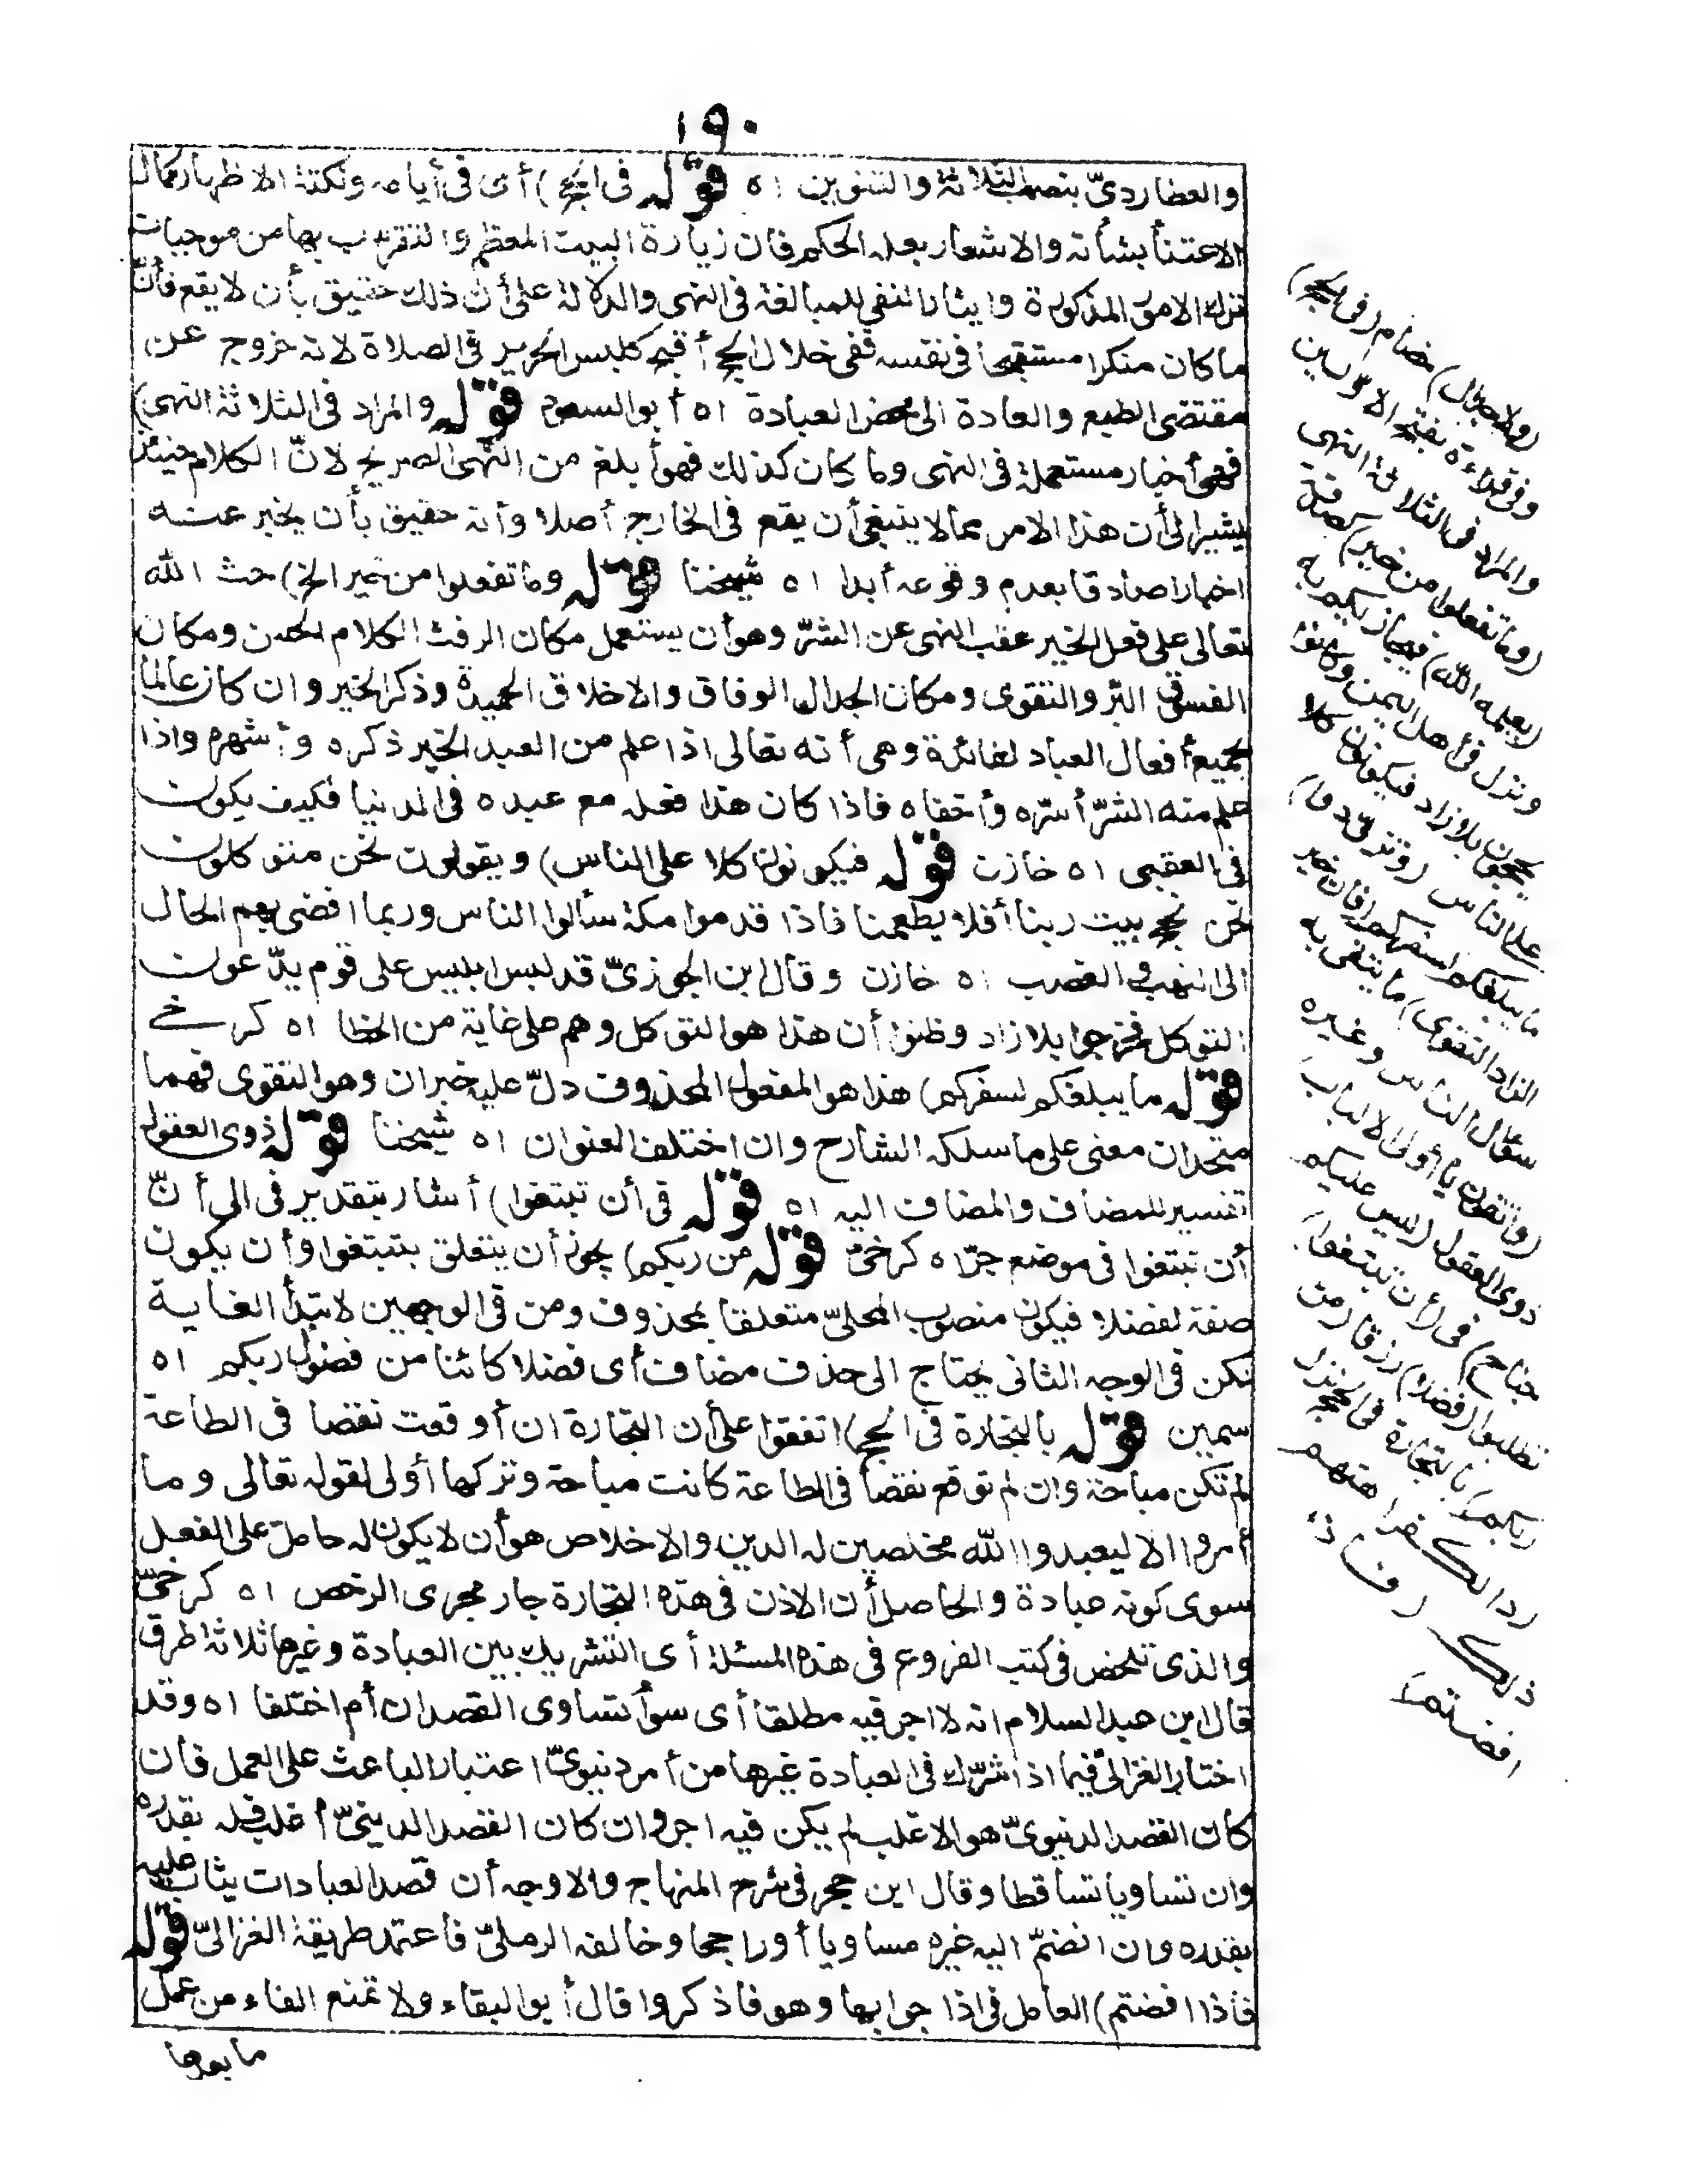 ١٩٠
والعطارديّ بنصب الثلاثة والتنوين اه قوله في الحج) أى فى أيامه ونكتة الاظهار كمال
الاعتنأ بشأنه والاشعار بعلة الحكم فان زيارة البيت المعظم والتقرب بها من موجبات
ترك الامور المذكورة وايثار النفى للمبالغة فى النهى والدلالة على أن ذلك حقيق بأن لا يقع فأنّ
ما كان منكرا مستقبحا فى نفسه ففى خلال الحج أقبح كلبس الحرير فى الصلاة لانه خروج عن
مقتضى الطبع والعادة الى محض العبادة اه أبو السعود قوله والمراد فى الثلاثة النهى)
فهى أخبار مستعملة فى النهى وما كان كذلك فهو أبلغ من النهى الصريح لانّ الكلام حينئذ
يشير الى أن هذا الامر مما لا ينبغى أن يقع فى الخارج أصلا وأنه حقيق بأن يخبر عنه
اخبارا صادقا بعدم وقوعه أبدا اه شيخنا قوله وما تفعلوا من خير الخ) حث الله
تعالى على فعل الخير عقب النهى عن الشرّ وهو أن يستعمل مكان الرفث الكلام الحسن ومكان
الفسوق البرّ والتقوى ومكان الجدال الوفاق والاخلاق الحميدة وذكر الخير وان كان عالما
بجميع أفعال العباد لفائدة وهى أنه تعالى اذا علم من العبد الخير ذكره وأشهره واذا
علم منه الشرّ أسرّه وأخفاه فاذا كان هذا فعله مع عبده فى الدنيا فكيف يكون
فى العقبى اه خازن قوله فيكونون كلا على الناس) ويقولون نحن متوكلون
نحن نحج بيت ربنا أفلا يطعمنا فاذا قدموا مكة سألوا الناس وربما افضى بهم الحال
الى النهب والغصب اه خازن وقال ابن الجوزىّ قد لبس ابليس على قوم يدّعون
التوكل فخرجوا بلا زاد وظنوا أن هذا هو التوكل وهم على غاية من الخطا اه كرخى
قوله ما يبلغكم لسفركم) هذا هو المفعول المحذوف دلّ عليه خبران وهو التقوى فهما
متحدان معنى على ما سلكه الشارح وان اختلف العنوان اه شيخنا قوله ذوى العقول
تفسير للمضاف والمضاف اليه اه قوله فى أن تبتغوا) أشار بتقدير فى الى أنّ
أن تبتغوا فى موضع جرّ اه كرخىّ قوله من ربكم) يجوز أن يتعلق بتبتغوا وأن يكون
صفة لفضلا فيكون منصوب المحلّ متعلقا بمحذوف ومن فى الوجهين لابتدأ الغاية
لكن فى الوجه الثانى يحتاج الى حذف مضاف أى فضلا كائنا من فضول ربكم اه
سمين قوله بالتجارة فى الحج) اتفقوا على أن التجارة ان أوقعت نقصا فى الطاعة
لم تكن مباحة وان لم توقع نقصا فى الطاعة كانت مباحة وتركها أولى لقوله تعالى وما
أمروا الا ليعبدوا الله مخلصين له الدين والاخلاص هو أن لا يكون له حامل على الفعل
سوى كونه عبادة والحاصل أن الاذن فى هذه التجارة جار مجرى الرخص اه كرخىّ
والذى تلخص فى كتب الفروع فى هذه المسئلة أى التشريك بين العبادة وغيرها ثلاثة طرق
قال ابن عبد السلام انه لا اجر فيه مطلقا أى سوأ تساوى القصدان أم اختلفا اه وقد
اختار الغزالىّ فيما اذا شرّك فى العبادة غيرها من أمر دنيوىّ اعتبار الباعث على العمل فان
كان القصد الدنيوىّ هو الاغلب لم يكن فيه اجر وان كان القصد الدينىّ أغلب فله بقدره
وان تساويا تساقطا وقال ابن حجر فى شرح المنهاج والاوجه أن قصد العبادات يثاب عليه
بقدره وان انضمّ اليه غيره مساويا أو راجحا وخالفه الرملىّ فاعتمد طريقة الغزالىّ قوله
فاذا افضتم) العامل فى اذا جوابها وهو فاذكروا قال أبو البقاء ولا تمنع الفاء من عمل
ما بعدها
(ولا جدال) خصام (فى الحج)
وفى قراءة بفتح الاوّلين
والمراد فى الثلاثة النهى
(وما تفعلوا من خير) كصدقة
(يعلمه الله) فيجازيكم به
ونزل فى أهل اليمن وكانوا
يحجون بلا زاد فيكونون كلا
على الناس (وتزوّدوا)
ما يبلغكم لسفركم (فان خير
الزاد التقوى) ما يتقى به
سؤال الناس وغيره
(واتقون يا أولى الالباب)
ذوى العقول (ليس عليكم
جناح) فى (أن تبتغوا)
تطلبوا (فضلا) رزقا (من
ربكم) بالتجارة فى الحج نزل
ردا لكراهتهم
ذلك (فاذا
افضتم)